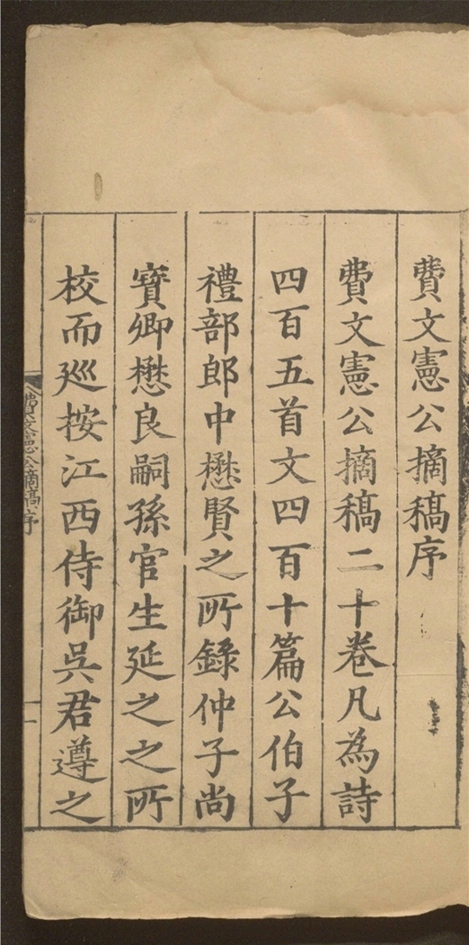 費文憲公摘稿序
費文憲公摘稿二十卷凡為詩
四百五首文四百十篇公伯子
禮部郎中懋賢之所錄仲子尚
寶卿懋良嗣孫官生延之之所
校而廵按江西侍御吳君遵之
費文憲公摘稿序
一